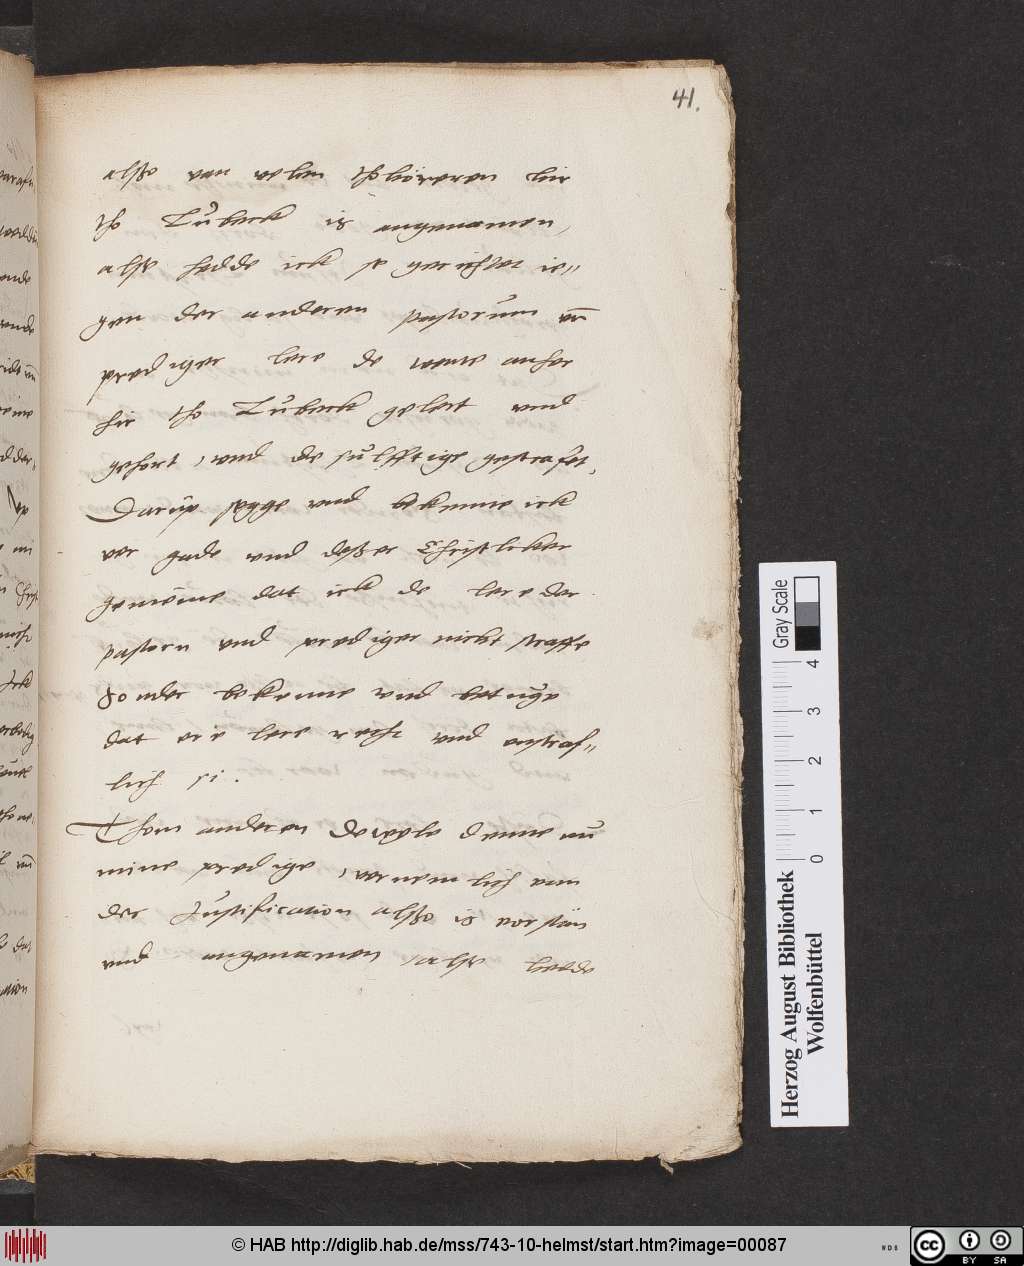 41.
alßo van velen thhöreren hir
tho Lübeck is angenamen,
alse hedde ick se gerichtet ie=
gen der anderen pastorum vñ
prediger lere de wente anher
hir tho Lübeck gelert vnd
gehort, vnd de sülfftige gestrafet,
Darüp segge vnd bekenne ick
vor gade vnd deßer Christliken
gemeine dat ick de lere der
pastorn vnd prediger nicht straffe
Sonder bekenne vnd betüge
dat ere lere recht vnd vnstraf=
lich si.
Thom anderen dewyle denne nu
mine predige, vornemlich van
der Justification alßo is vorstan
vnd angenamen, alse hedde
Gray Scale
0 1 2 3 4
Herzog August Bibliothek
Wolfenbüttel
© HAB http://diglib.hab.de/mss/743-10-helmst/start.htm?image=00087
cc BY SA